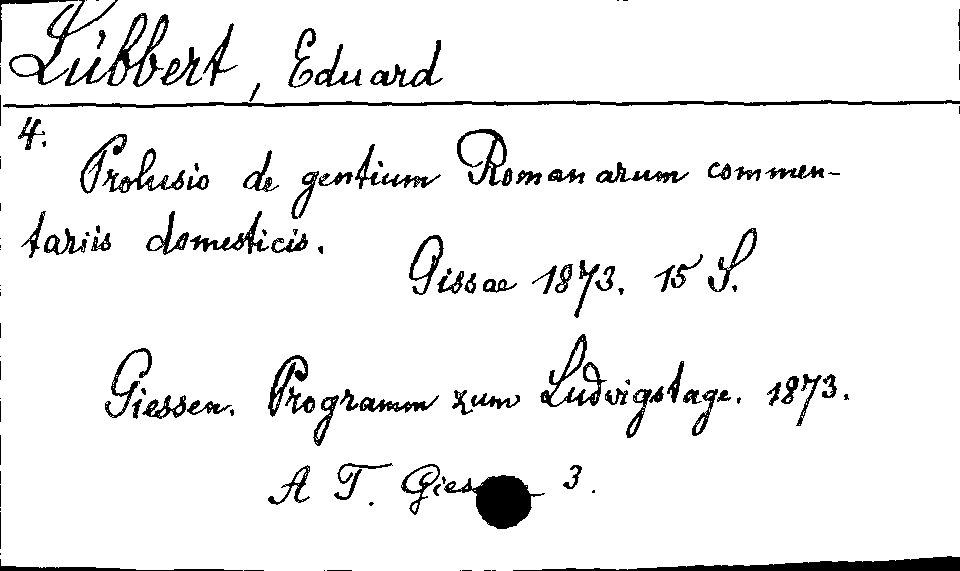 Lübbert, Eduard
4.
Prolusio de gentium Romanarum commen-
tariis domesticis.
Gissae 1873. 15 S.
Giessen. Programm zum Ludwigstage. 1873.
A T. 3.